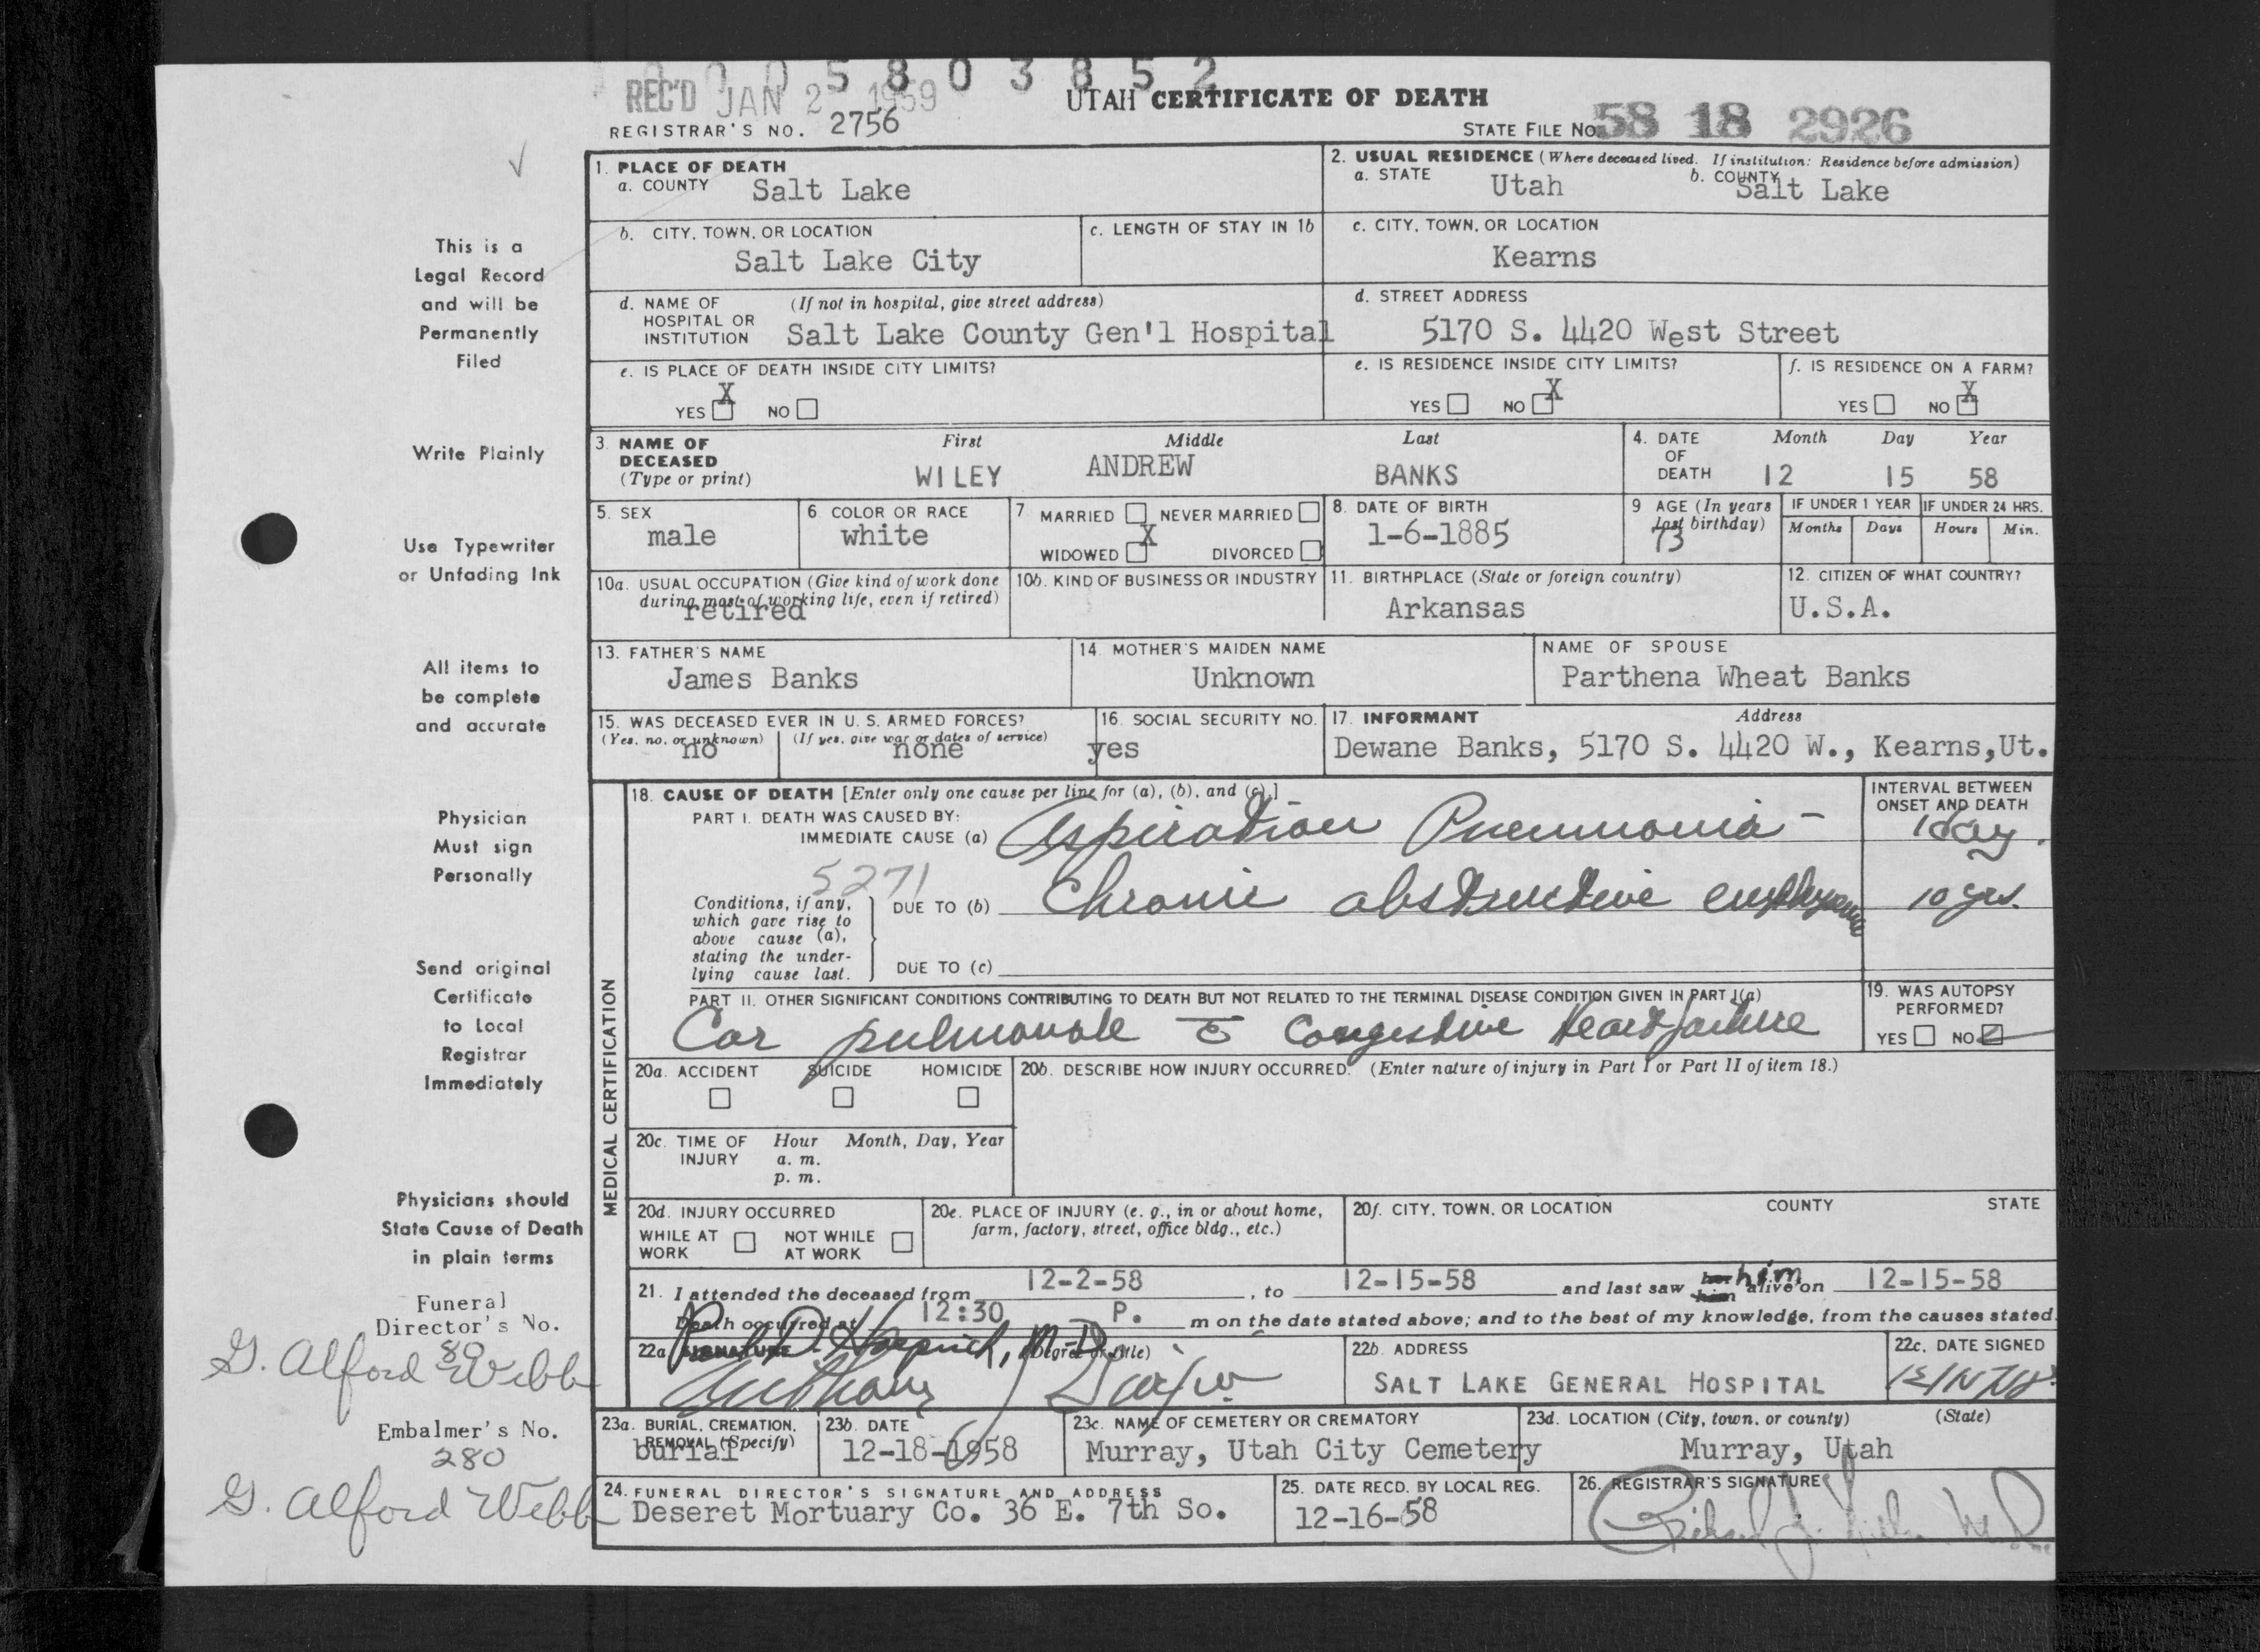 0 0 0 5 8 0 3 8 5 2
REC'D JAN 2 1959
UTAH CERTIFICATE OF DEATH
REGISTRAR'S NO. 2756
STATE FILE No. 58 18 2926
1. PLACE OF DEATH
a. COUNTY Salt Lake
2. USUAL RESIDENCE (Where deceased lived. If institution: Residence before admission)
a. STATE Utah b. COUNTY Salt Lake
b. CITY, TOWN, OR LOCATION Salt Lake City
c. LENGTH OF STAY IN 1b
c. CITY, TOWN, OR LOCATION Kearns
d. NAME OF HOSPITAL OR INSTITUTION (If not in hospital, give street address) Salt Lake County Gen'l Hospital
d. STREET ADDRESS 5170 S. 4420 West Street
e. IS PLACE OF DEATH INSIDE CITY LIMITS?
YES X NO
e. IS RESIDENCE INSIDE CITY LIMITS?
YES NO X
f. IS RESIDENCE ON A FARM?
YES NO X
3. NAME OF DECEASED (Type or print)
First Middle Last
WILEY ANDREW BANKS
4. DATE OF DEATH Month Day Year
12 15 58
5. SEX male
6. COLOR OR RACE white
7 MARRIED NEVER MARRIED
WIDOWED X DIVORCED
8. DATE OF BIRTH 1-6-1885
9 AGE (In years last birthday) 73
IF UNDER 1 YEAR Months Days
IF UNDER 24 HRS. Hours Min.
10a. USUAL OCCUPATION (Give kind of work done during most of working life, even if retired) retired
10b. KIND OF BUSINESS OR INDUSTRY
11. BIRTHPLACE (State or foreign country) Arkansas
12. CITIZEN OF WHAT COUNTRY? U.S.A.
13. FATHER'S NAME James Banks
14. MOTHER'S MAIDEN NAME Unknown
NAME OF SPOUSE Parthena Wheat Banks
15. WAS DECEASED EVER IN U. S. ARMED FORCES?
(Yes, no, or unknown) no (If yes, give war or dates of service) none
16. SOCIAL SECURITY NO. yes
17. INFORMANT Address
Dewane Banks, 5170 S. 4420 W., Kearns,Ut.
MEDICAL CERTIFICATION
18. CAUSE OF DEATH [Enter only one cause per line for (a), (b), and (c).]
INTERVAL BETWEEN ONSET AND DEATH
PART I. DEATH WAS CAUSED BY:
IMMEDIATE CAUSE (a) Aspiration Pneumonia - 1 day.
5271
Conditions, if any, which gave rise to above cause (a), stating the underlying cause last.
DUE TO (b) Chronic obstructive emphysema 10 yrs.
DUE TO (c)
PART II. OTHER SIGNIFICANT CONDITIONS CONTRIBUTING TO DEATH BUT NOT RELATED TO THE TERMINAL DISEASE CONDITION GIVEN IN PART I(a)
Cor pulmonale c̄ Congestive Heart failure
19. WAS AUTOPSY PERFORMED?
YES NO
20a. ACCIDENT SUICIDE HOMICIDE
20b. DESCRIBE HOW INJURY OCCURRED. (Enter nature of injury in Part I or Part II of item 18.)
20c. TIME OF INJURY Hour Month, Day, Year
a. m.
p. m.
20d. INJURY OCCURRED
WHILE AT WORK NOT WHILE AT WORK
20e. PLACE OF INJURY (e. g., in or about home, farm, factory, street, office bldg., etc.)
20f. CITY, TOWN, OR LOCATION COUNTY STATE
21. I attended the deceased from 12-2-58, to 12-15-58 and last saw her him him alive on 12-15-58
Death occurred at 12:30 P. m on the date stated above; and to the best of my knowledge, from the causes stated.
22a. SIGNATURE (Degree or title)
M-D
22b. ADDRESS SALT LAKE GENERAL HOSPITAL
22c. DATE SIGNED
23a. BURIAL, CREMATION, REMOVAL (Specify) burial
23b. DATE 12-18-1958
23c. NAME OF CEMETERY OR CREMATORY Murray, Utah City Cemetery
23d. LOCATION (City, town, or county) (State) Murray, Utah
24. FUNERAL DIRECTOR'S SIGNATURE AND ADDRESS
Deseret Mortuary Co. 36 E. 7th So.
25. DATE RECD. BY LOCAL REG. 12-16-58
26. REGISTRAR'S SIGNATURE
This is a
Legal Record
and will be
Permanently
Filed
Write Plainly
Use Typewriter
or Unfading Ink
All items to
be complete
and accurate
Physician
Must sign
Personally
Send original
Certificate
to Local
Registrar
Immediately
Physicians should
State Cause of Death
in plain terms
Funeral
Director's No.
80
G. Alford Webb
Embalmer's No.
280
G. Alford Webb